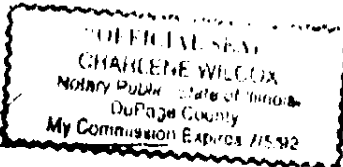 "OFFICIAL SEAL"
CHARLENE WILCOX
Notary Public State of Illinois
DuPage County
My Commission Expires 7/5/92